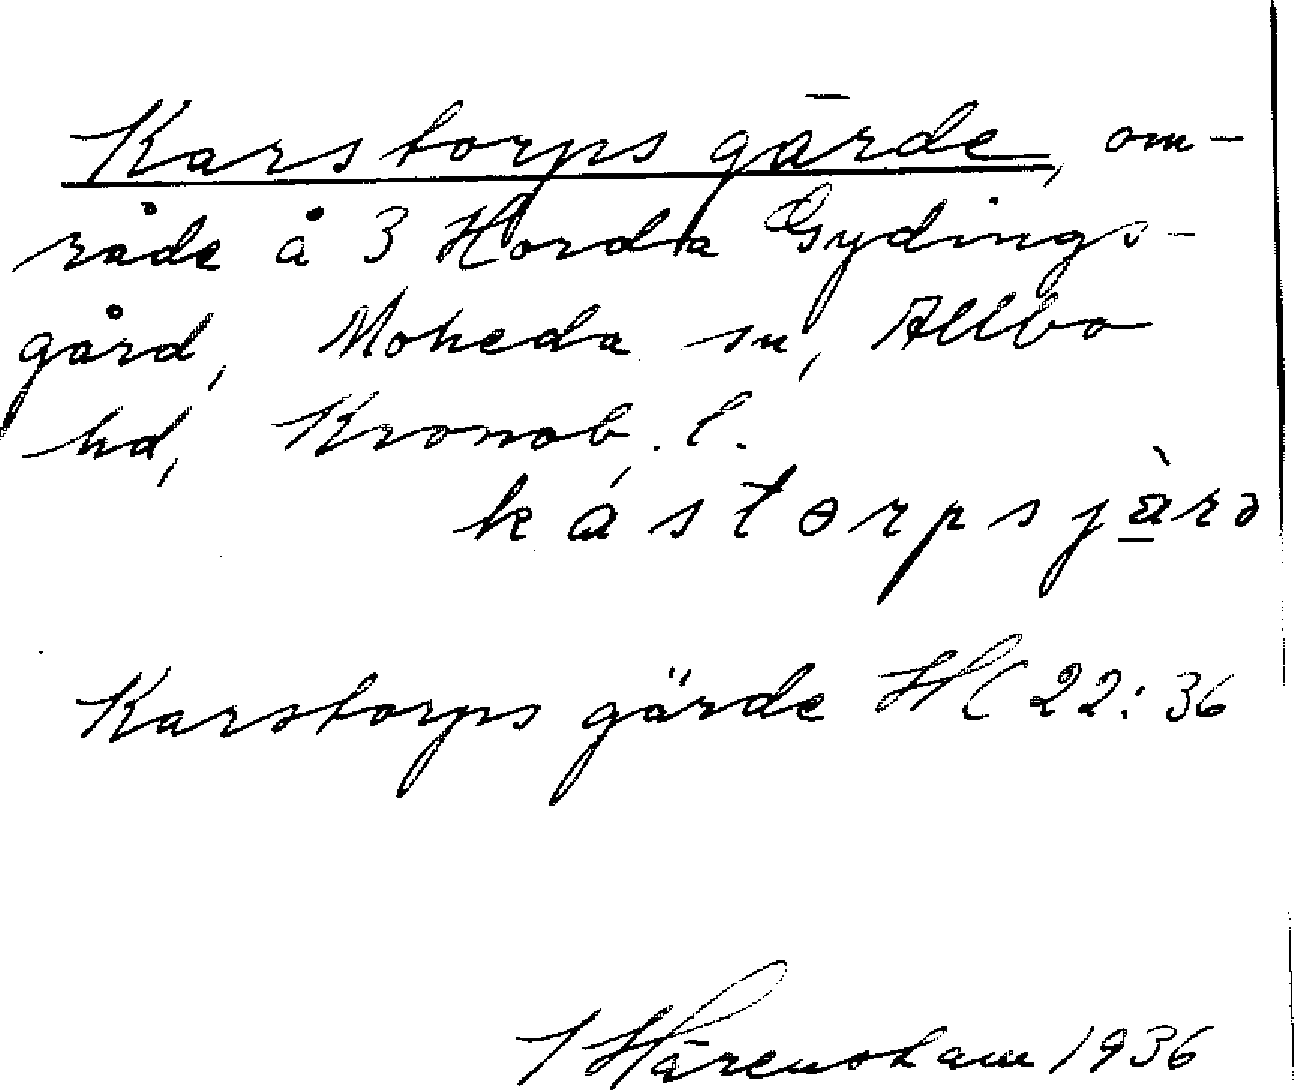 Karstorps gärde, om-
råde å 3 Horda Gydings-
gård, Moheda sn, Allbo
hd, Kronob. l.
kástorpsjà̱rə
Karstorps gärde HC 22:36
1936